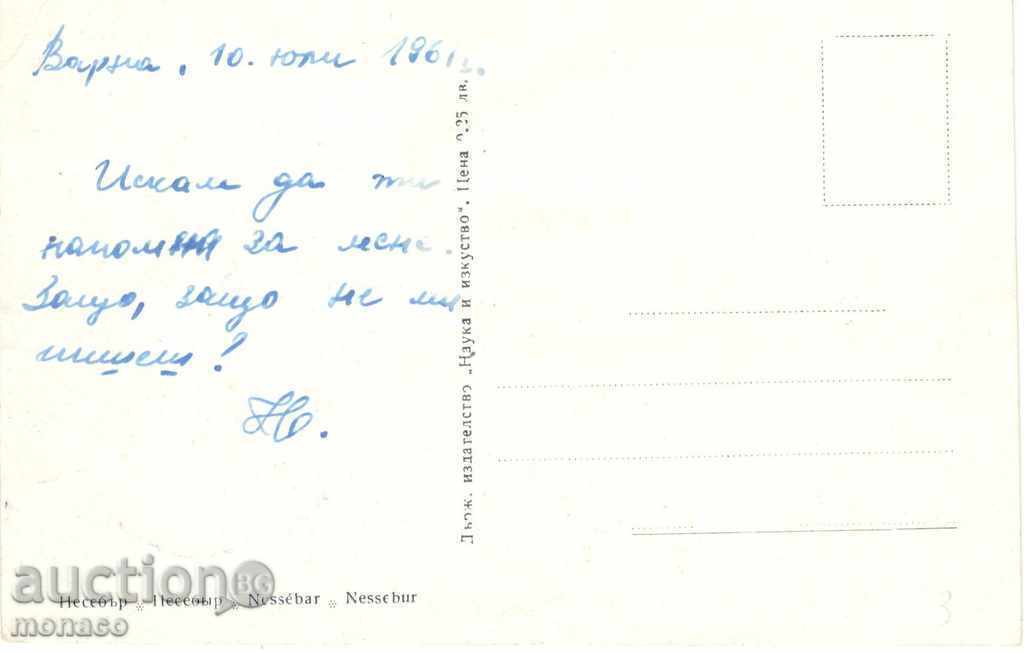 Варна, 10. юли 1961 г.
Искам да ти
напомня за мене.
Защо, защо не ми
пишеш?
Държ. издателство „Наука и изкуство“. Цена 0,25 лв.
Несебър ※ Несебыр ※ Nessébar ※ Nessebur
auction BG
monaco
3